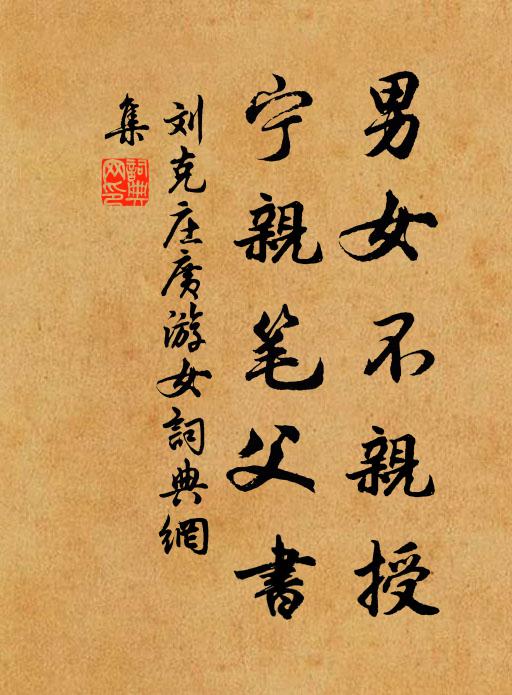 男女不親授
宁親笔父書
刘克庄廣游女詞典網
集
詞典网印